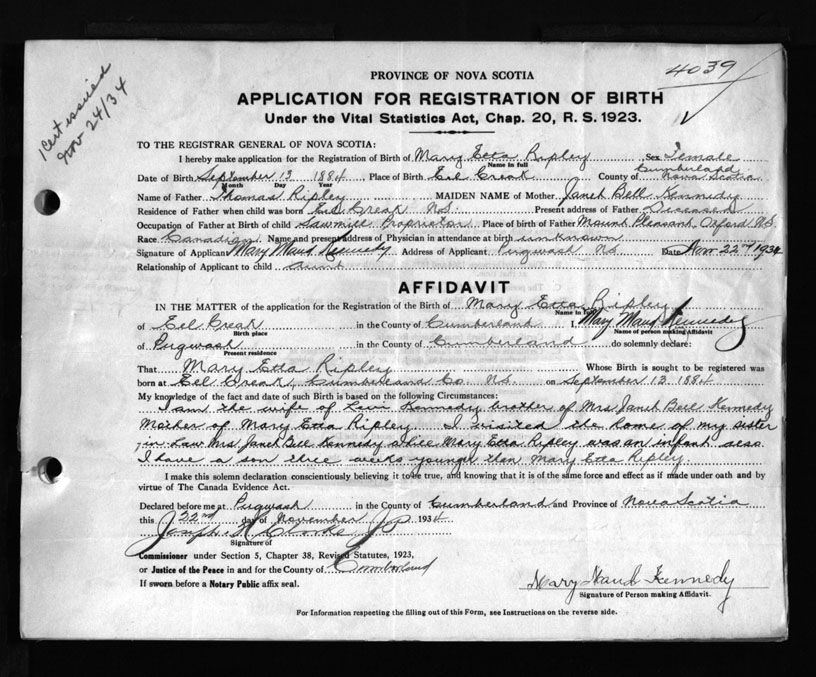 4039
Cert issued
Nov 24/34
PROVINCE OF NOVA SCOTIA
APPLICATION FOR REGISTRATION OF BIRTH
Under the Vital Statistics Act, Chap. 20, R. S. 1923.
TO THE REGISTRAR GENERAL OF NOVA SCOTIA:
I hereby make application for the Registration of Birth of Mary Etta Ripley Sex Female
Name in full
Date of Birth September 13 1884 Place of Birth Eel Creak County of Cumberland Nova Scotia
Month Day Year
Name of Father Thomas Ripley MAIDEN NAME of Mother Janet Bell Kennedy
Residence of Father when child was born Eel Creak NS. Present address of Father Deceased
Occupation of Father at Birth of child Sawmill Proprietor Place of birth of Father Mount Pleasant Oxford N.S.
Race Canadian Name and present address of Physician in attendance at birth unknown
Signature of Applicant Mary Maud Kennedy Address of Applicant Pugwash NS Date Nov 22nd 1934
Relationship of Applicant to child aunt
AFFIDAVIT
IN THE MATTER of the application for the Registration of the Birth of Mary Etta Ripley
Name in full
of Eel Creak in the County of Cumberland I, Mary Maud Kennedy
Birth place Name of person making Affidavit
of Pugwash in the County of Cumberland do solemnly declare:
Present residence
That Mary Etta Ripley Whose Birth is sought to be registered was
born at Eel Creak, Cumberland Co. NS. on September 13 1884
My knowledge of the fact and date of such Birth is based on the following Circumstances:
I am the wife of Levi Kennedy brother of Mrs Janet Bell Kennedy
Mother of Mary Etta Ripley. I visited the home of my sister
in law Mrs Janet Bell Kennedy while Mary Etta Ripley was an infant also
I have a son three weeks younger than Mary Etta Ripley.
I make this solemn declaration conscientiously believing it to be true, and knowing that it is of the same force and effect as if made under oath and by
virtue of The Canada Evidence Act.
Declared before me at Pugwash in the County of Cumberland and Province of Nova Scotia
this 22nd day of November 1934
Joseph H Clarke J P
Signature of
Commissioner under Section 5, Chapter 38, Revised Statutes, 1923,
or Justice of the Peace in and for the County of Cumberland
If sworn before a Notary Public affix seal.
Mary Maud Kennedy
Signature of Person making Affidavit.
For Information respecting the filling out of this Form, see Instructions on the reverse side.